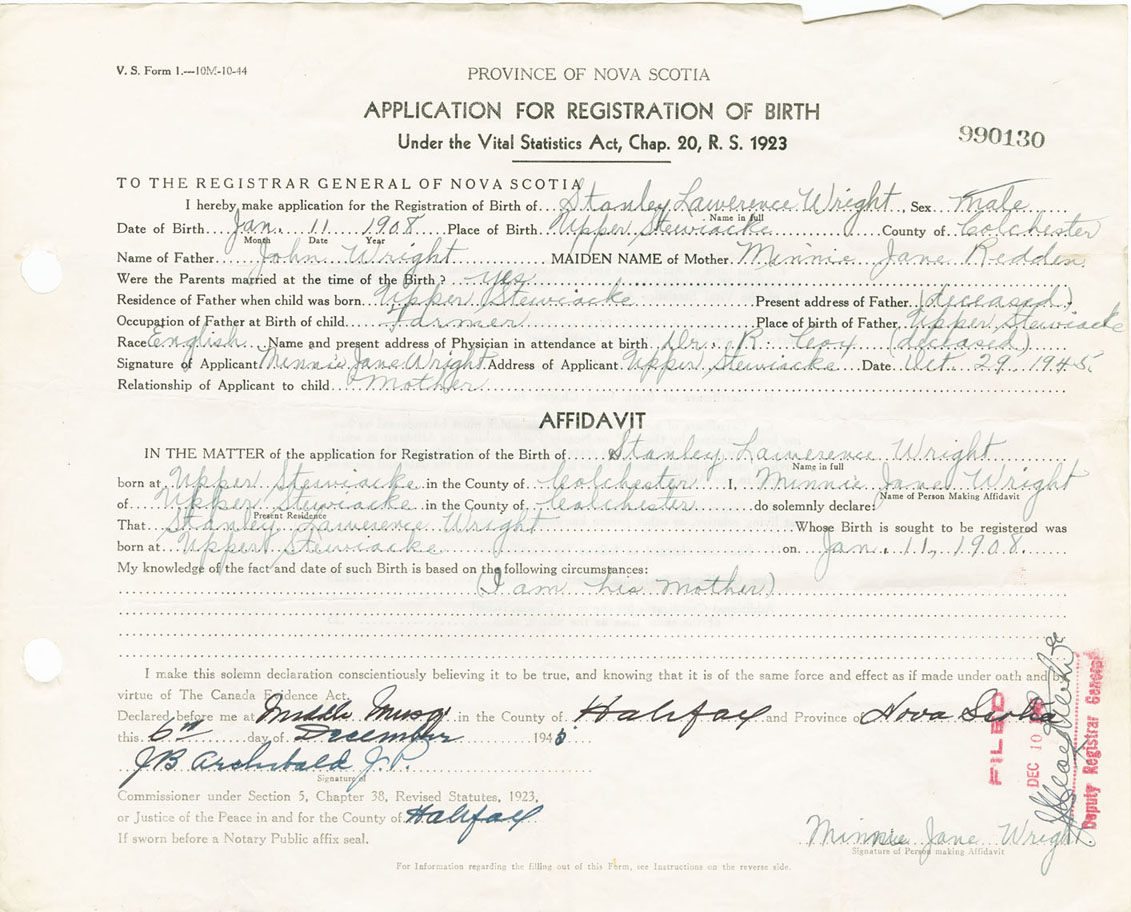 V. S. Form 1.—10M-10-44
PROVINCE OF NOVA SCOTIA
APPLICATION FOR REGISTRATION OF BIRTH
Under the Vital Statistics Act, Chap. 20, R. S. 1923
990130
TO THE REGISTRAR GENERAL OF NOVA SCOTIA
I hereby make application for the Registration of Birth of Stanley Lawerence Wright, Sex Male
Name in full
Date of Birth Jan. 11 1908 Place of Birth Upper Stewiacke County of Colchester
Month Date Year
Name of Father John Wright MAIDEN NAME of Mother Minnie Jane Redden
Were the Parents married at the time of the Birth? yes
Residence of Father when child was born Upper Stewiacke Present address of Father (deceased)
Occupation of Father at Birth of child Farmer Place of birth of Father Upper Stewiacke
Race English Name and present address of Physician in attendance at birth Dr. R. Cox (deceased)
Signature of Applicant Minnie Jane Wright Address of Applicant Upper Stewiacke Date Oct. 29, 1945.
Relationship of Applicant to child Mother
AFFIDAVIT
IN THE MATTER of the application for Registration of the Birth of Stanley Lawerence Wright
Name in full
born at Upper Stewiacke in the County of Colchester I, Minnie Jane Wright
Name of Person Making Affidavit
of Upper Stewiacke in the County of Colchester do solemnly declare:
Present Residence
That Stanley Lawerence Wright Whose Birth is sought to be registered was
born at Upper Stewiacke on Jan. 11, 1908.
My knowledge of the fact and date of such Birth is based on the following circumstances:
(I am his mother)
I make this solemn declaration conscientiously believing it to be true, and knowing that it is of the same force and effect as if made under oath and by
virtue of The Canada Evidence Act.
Declared before me at Middle Musq. in the County of Halifax and Province of Nova Scotia
this 6th day of December 1945
JB Archibald J.P.
Signature of
Commissioner under Section 5, Chapter 38, Revised Statutes, 1923,
or Justice of the Peace in and for the County of Halifax
If sworn before a Notary Public affix seal.
Minnie Jane Wright
Signature of Person making Affidavit
FILED
DEC 10
Deputy Registrar General
For Information regarding the filling out of this Form, see Instructions on the reverse side.